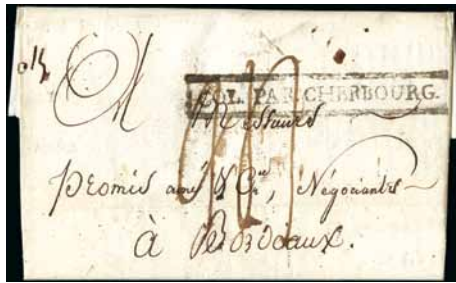 COL. PAR CHERBOURG.
Messieurs
Promis ainé & Cie, Négociantes
à Bordeaux.